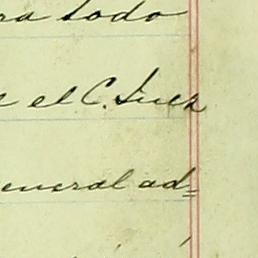 ra todo
e el C. Juez
eneral ad=